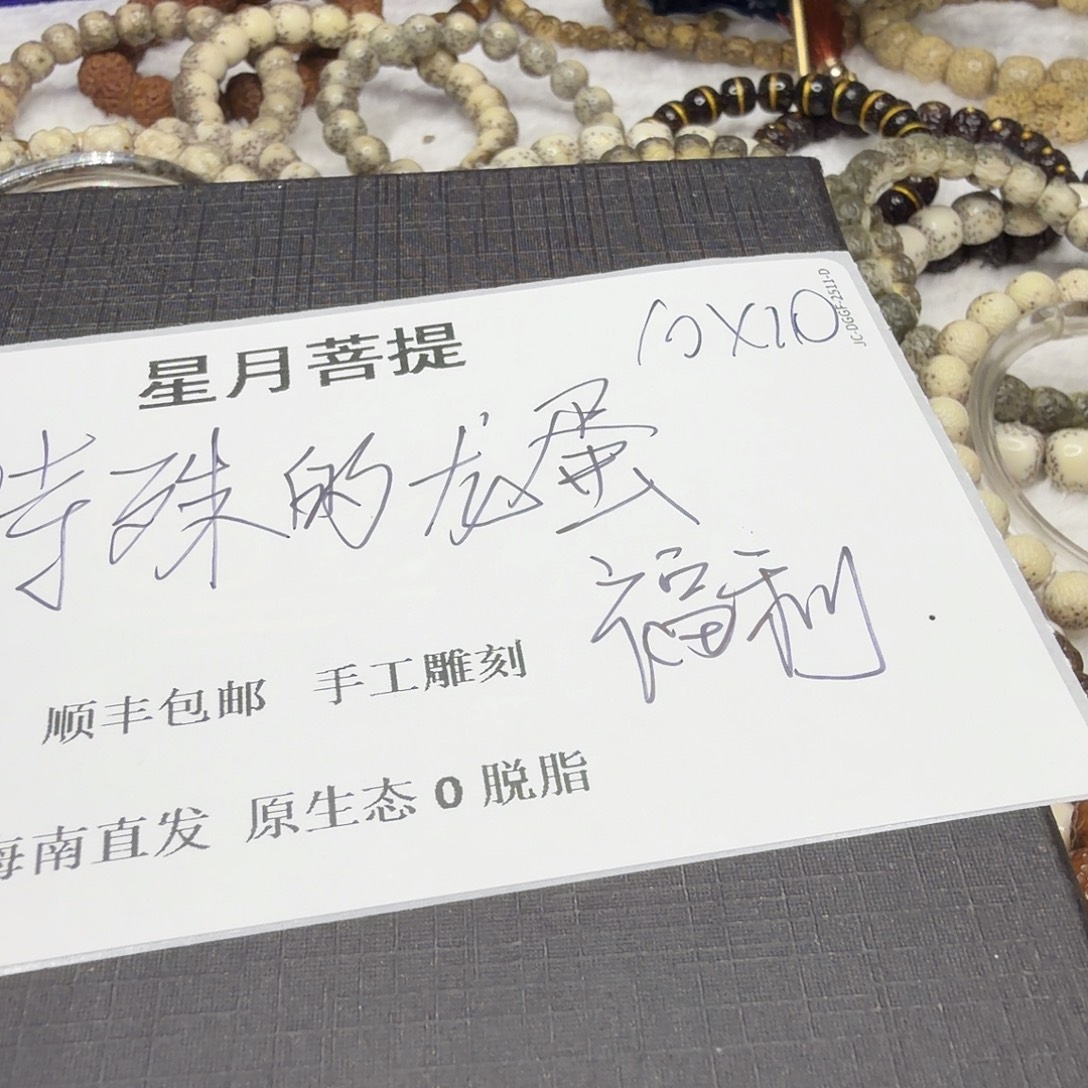 星月菩提
10X10
JC-DGGF-2511-D
特殊的龙蛋
福利
顺丰包邮 手工雕刻
海南直发 原生态0脱脂